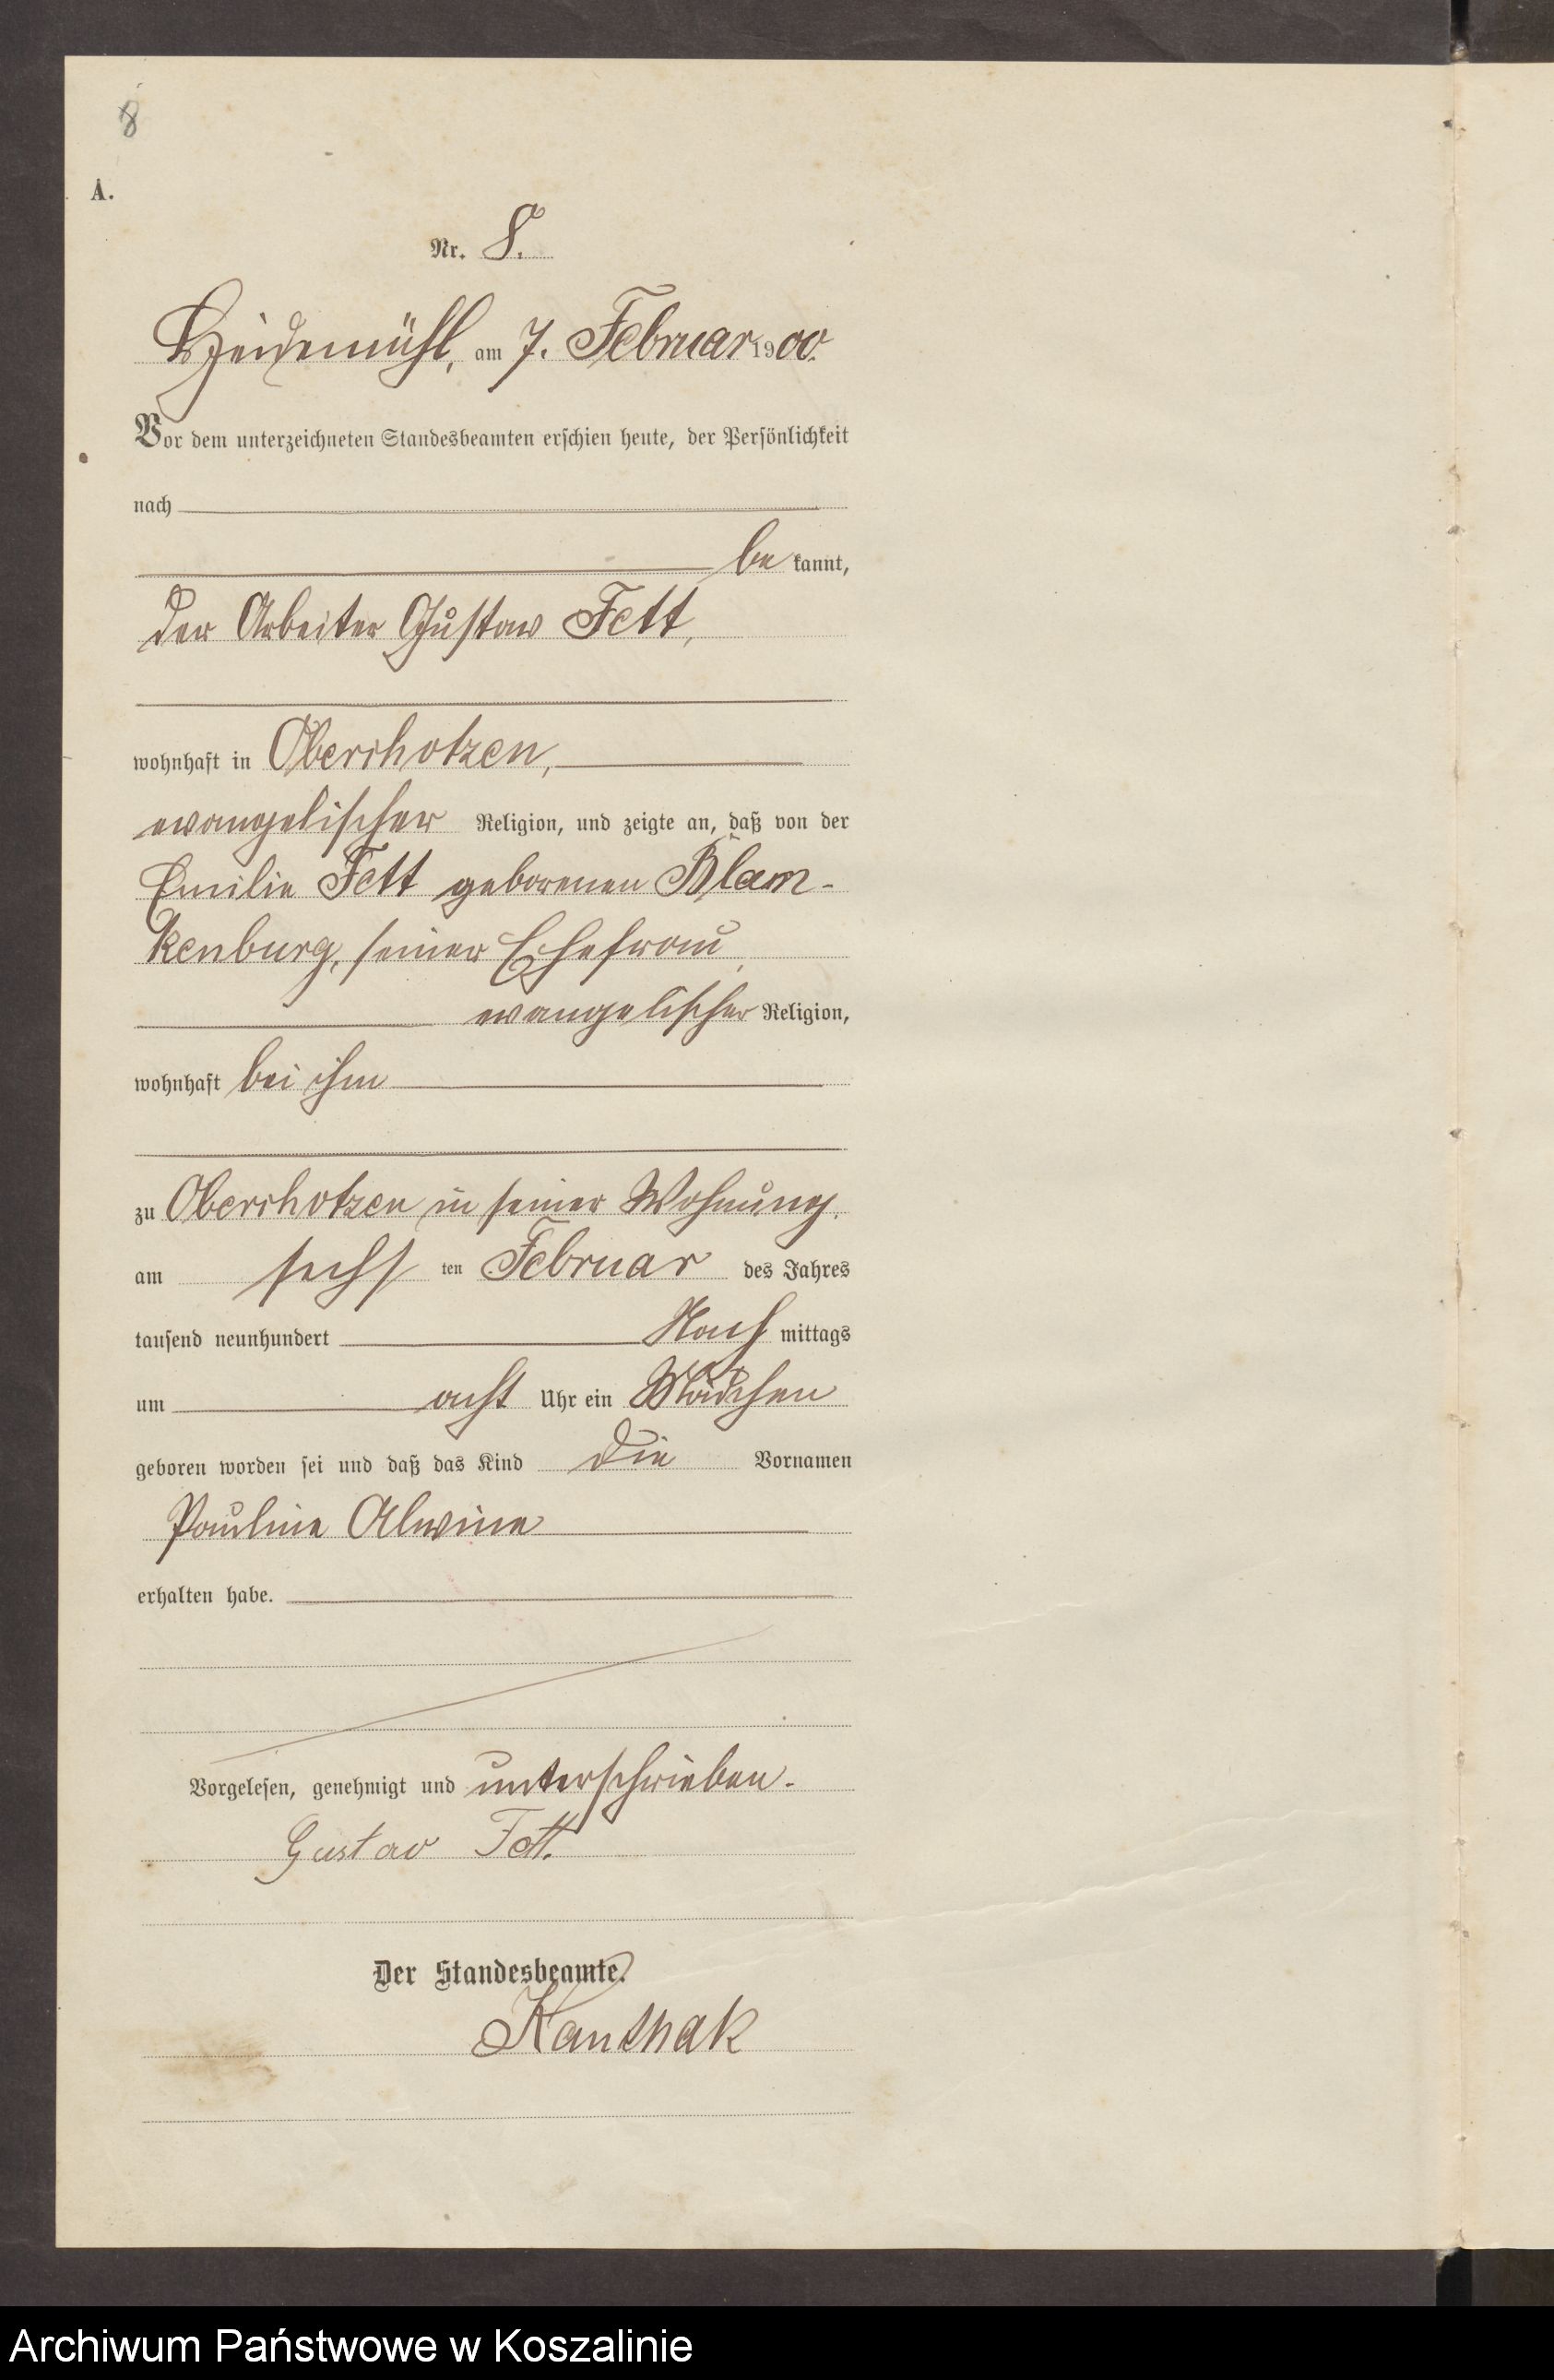 8
A.
Nr. 8.
Heidemühl, am 7. Februar 1900.
Vor dem unterzeichneten Standesbeamten erschien heute, der Persönlichkeit
nach
be kannt,
der Arbeiter Gustav Fett,
wohnhaft in Oberschotzen,
evangelischer Religion, und zeigte an, daß von der
Emilie Fett geborenen Blam-
kenburg, seiner Ehefrau,
evangelischer Religion,
wohnhaft bei ihm
zu Oberschotzen in seiner Wohnung,
am sechs ten Februar des Jahres
tausend neunhundert Nach mittags
um acht Uhr ein Mädchen
geboren worden sei und daß das Kind die Vornamen
Pauline Alwine
erhalten habe.
Vorgelesen, genehmigt und unterschrieben.
Gustav Fett.
Der Standesbeamte.
Kanthak
Archiwum Państwowe w Koszalinie